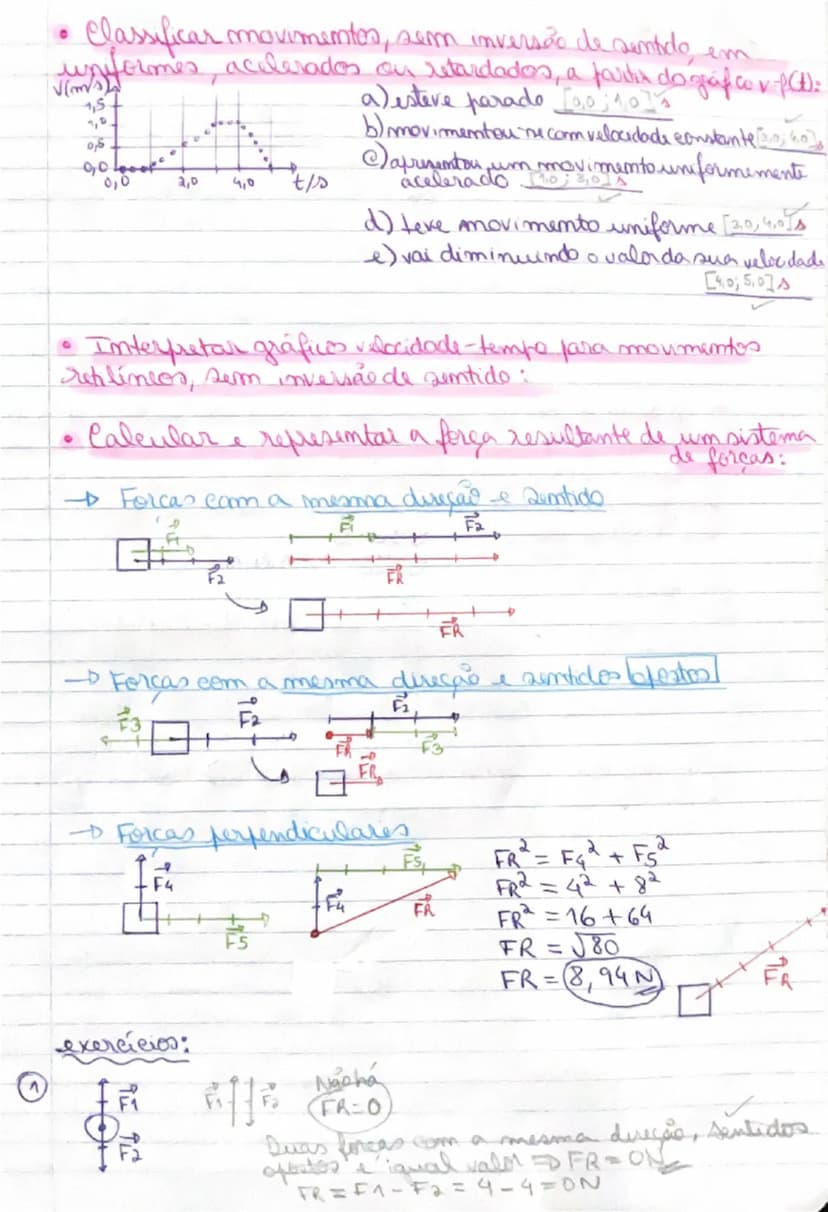 • Classificar movimentos, sem inversão de sentido, em
uniformes, acelerados ou retardados, a partir do gráfico v=f(t):
v(m/s)
1,5
1,0
0,5
0,0
0,0 2,0 4,0 t/s
a) esteve parado [0,0 ; 1,0] s
b) movimentou-se com velocidade constante [3,0; 4,0] s
c) apresentou um movimento uniformemente
acelerado [1,0 ; 3,0] s
d) teve movimento uniforme [3,0, 4,0] s
e) vai diminuindo o valor da sua velocidade
[4,0; 5,0] s
• Interpretar gráficos velocidade-tempo para movimentos
retilíneos, sem inversão de sentido:
• Calcular e representar a força resultante de um sistema
de forças:
→ Forças com a mesma direção e sentido
F1 F2
F1 F2
FR
FR
→ Forças com a mesma direção e sentidos opostos
F3 F2
F2
FR F3
FR
→ Forças perpendiculares
F4
F5
F5
F4 FR
FR² = F4² + F5²
FR² = 4² + 8²
FR² = 16 + 64
FR = √80
FR = 8,94 N
FR
exercícios:
1
F1
F2
F1 F2
Não há
FR = 0
Duas forças com a mesma direção, sentidos
opostos e igual valor ⇒ FR = 0N
FR = F1 - F2 = 4 - 4 = 0N